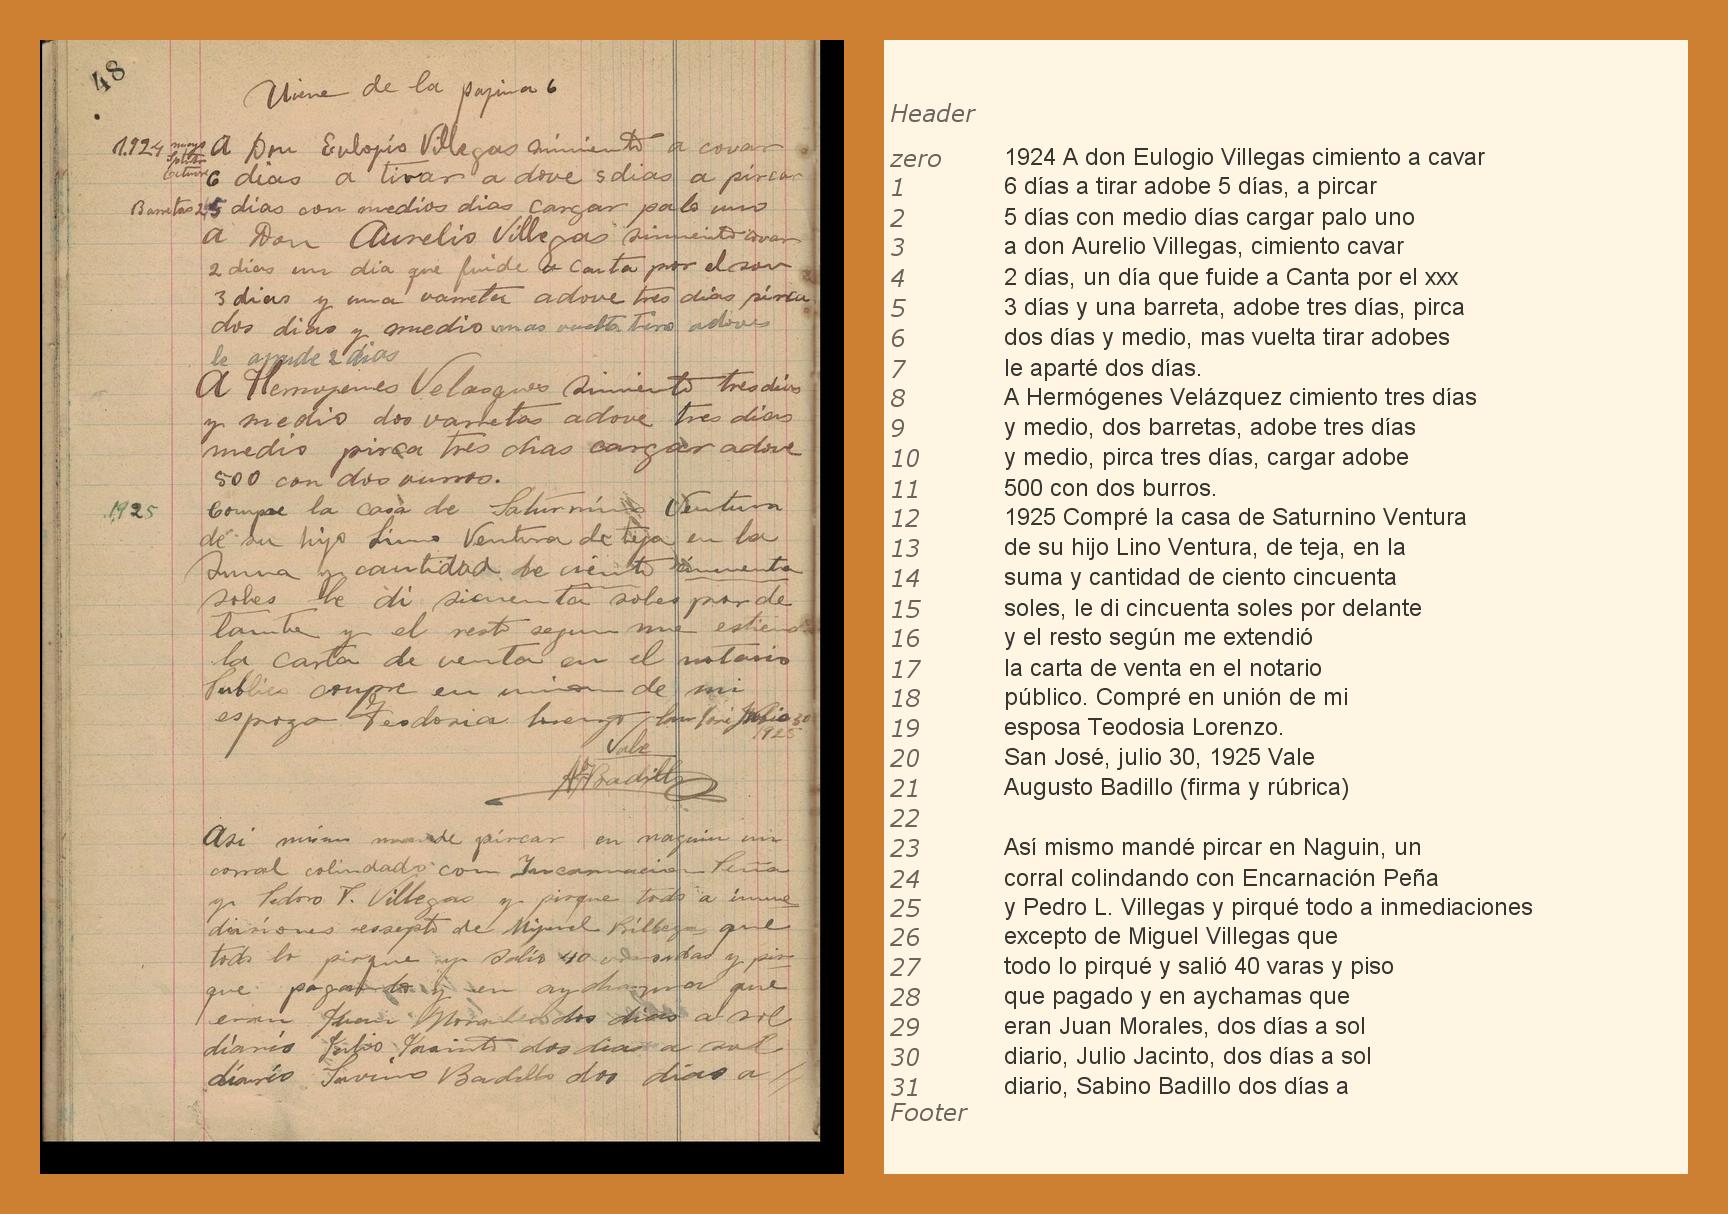 48
Viene de la pagina 6
1.924 mayo
Octubre
A Don Eulopio Villegas simiento a covar
6 dias a tirar adove 5 dias a pircar
Barretas 2
5 dias con medios dias cargar palo uno
A Don Aurelio Villegas simiento covar
2 dias un dia que fuide a Canta por el
3 dias y una varreta adove tres dias pirca
dos dias y medio mas vuelta tiro adoves
le ayude 2 dias
A Hermojenes Velasques simiento tres dias
y medio dos varretas adove tres dias
medio pirca tres dias cargar adove
500 con dos vurros.
1.925
Compre la casa de Saturnino Ventura
de su hijo Lino Ventura de teja en la
suma y cantidad de ciento
soles le di sicuenta soles por de
lante y el resto segun me
la carta de venta en el notario
Publico compre en union de mi
espoza Teodoria San José Julio 30
1925
Vale
A Badillo
Asi mismo mande pircar en naguin un
corral colindado con Incarnacion Peña
y Pedro F. Villegas y pirque todo a inme
diaciones essepto de Miguel Billegas que
todo lo pirque y salio 40 y pir
que pagando y en que
eran Juan Morales dos dias a sol
diario Julio Jasinto dos dias a sol
diario Badillo dos dias a //
Header
zero 1924 A don Eulogio Villegas cimiento a cavar
1 6 días a tirar adobe 5 días, a pircar
2 5 días con medio días cargar palo uno
3 a don Aurelio Villegas, cimiento cavar
4 2 días, un día que fuide a Canta por el xxx
5 3 días y una barreta, adobe tres días, pirca
6 dos días y medio, mas vuelta tirar adobes
7 le aparté dos días.
8 A Hermógenes Velázquez cimiento tres días
9 y medio, dos barretas, adobe tres días
10 y medio, pirca tres días, cargar adobe
11 500 con dos burros.
12 1925 Compré la casa de Saturnino Ventura
13 de su hijo Lino Ventura, de teja, en la
14 suma y cantidad de ciento cincuenta
15 soles, le di cincuenta soles por delante
16 y el resto según me extendió
17 la carta de venta en el notario
18 público. Compré en unión de mi
19 esposa Teodosia Lorenzo.
20 San José, julio 30, 1925 Vale
21 Augusto Badillo (firma y rúbrica)
22
23 Así mismo mandé pircar en Naguin, un
24 corral colindando con Encarnación Peña
25 y Pedro L. Villegas y pirqué todo a inmediaciones
26 excepto de Miguel Villegas que
27 todo lo pirqué y salió 40 varas y piso
28 que pagado y en aychamas que
29 eran Juan Morales, dos días a sol
30 diario, Julio Jacinto, dos días a sol
31 diario, Sabino Badillo dos días a
Footer